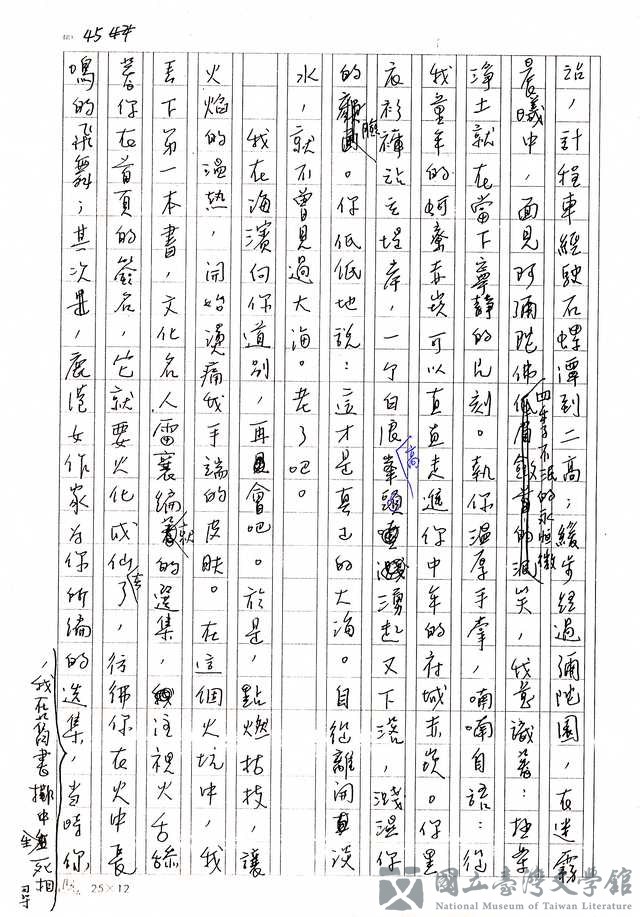 45 544
站，計程車經駛石螺潭到二高；緩步經過彌陀園，在迷霧
晨曦中，面見阿彌陀佛四季不泯的永恒微笑，我意識著：極樂
淨土就在當下寧靜的片刻。執你溫厚手掌，喃喃自語：從
我童年的蚵寮赤崁可以直直走進你中年的府城赤崁。你黑
衣衫褲站立堤岸，一个白浪高湧起又下落，濺濕你
的臉。你低低地說：這才是真正的大海。自從離開淡
水，就不曾見過大海。老了吧。
我在海濱向你道別，再會吧。於是，點燃枯枝，讓
火焰的溫熱，開始燙痛我手端的皮膚。在這個火坑中，我
丟下第一本書，文化名人雷襄編就的選集，注視火舌舔
著你在首頁的簽名，它就要火化成仙了，彷彿你在火中長
鳴的飛舞；其次是，鹿港女作家為你所編的選集，當時你
，我在舊書攤中死相
25×12
國立臺灣文學館
National Museum of Taiwan Literature